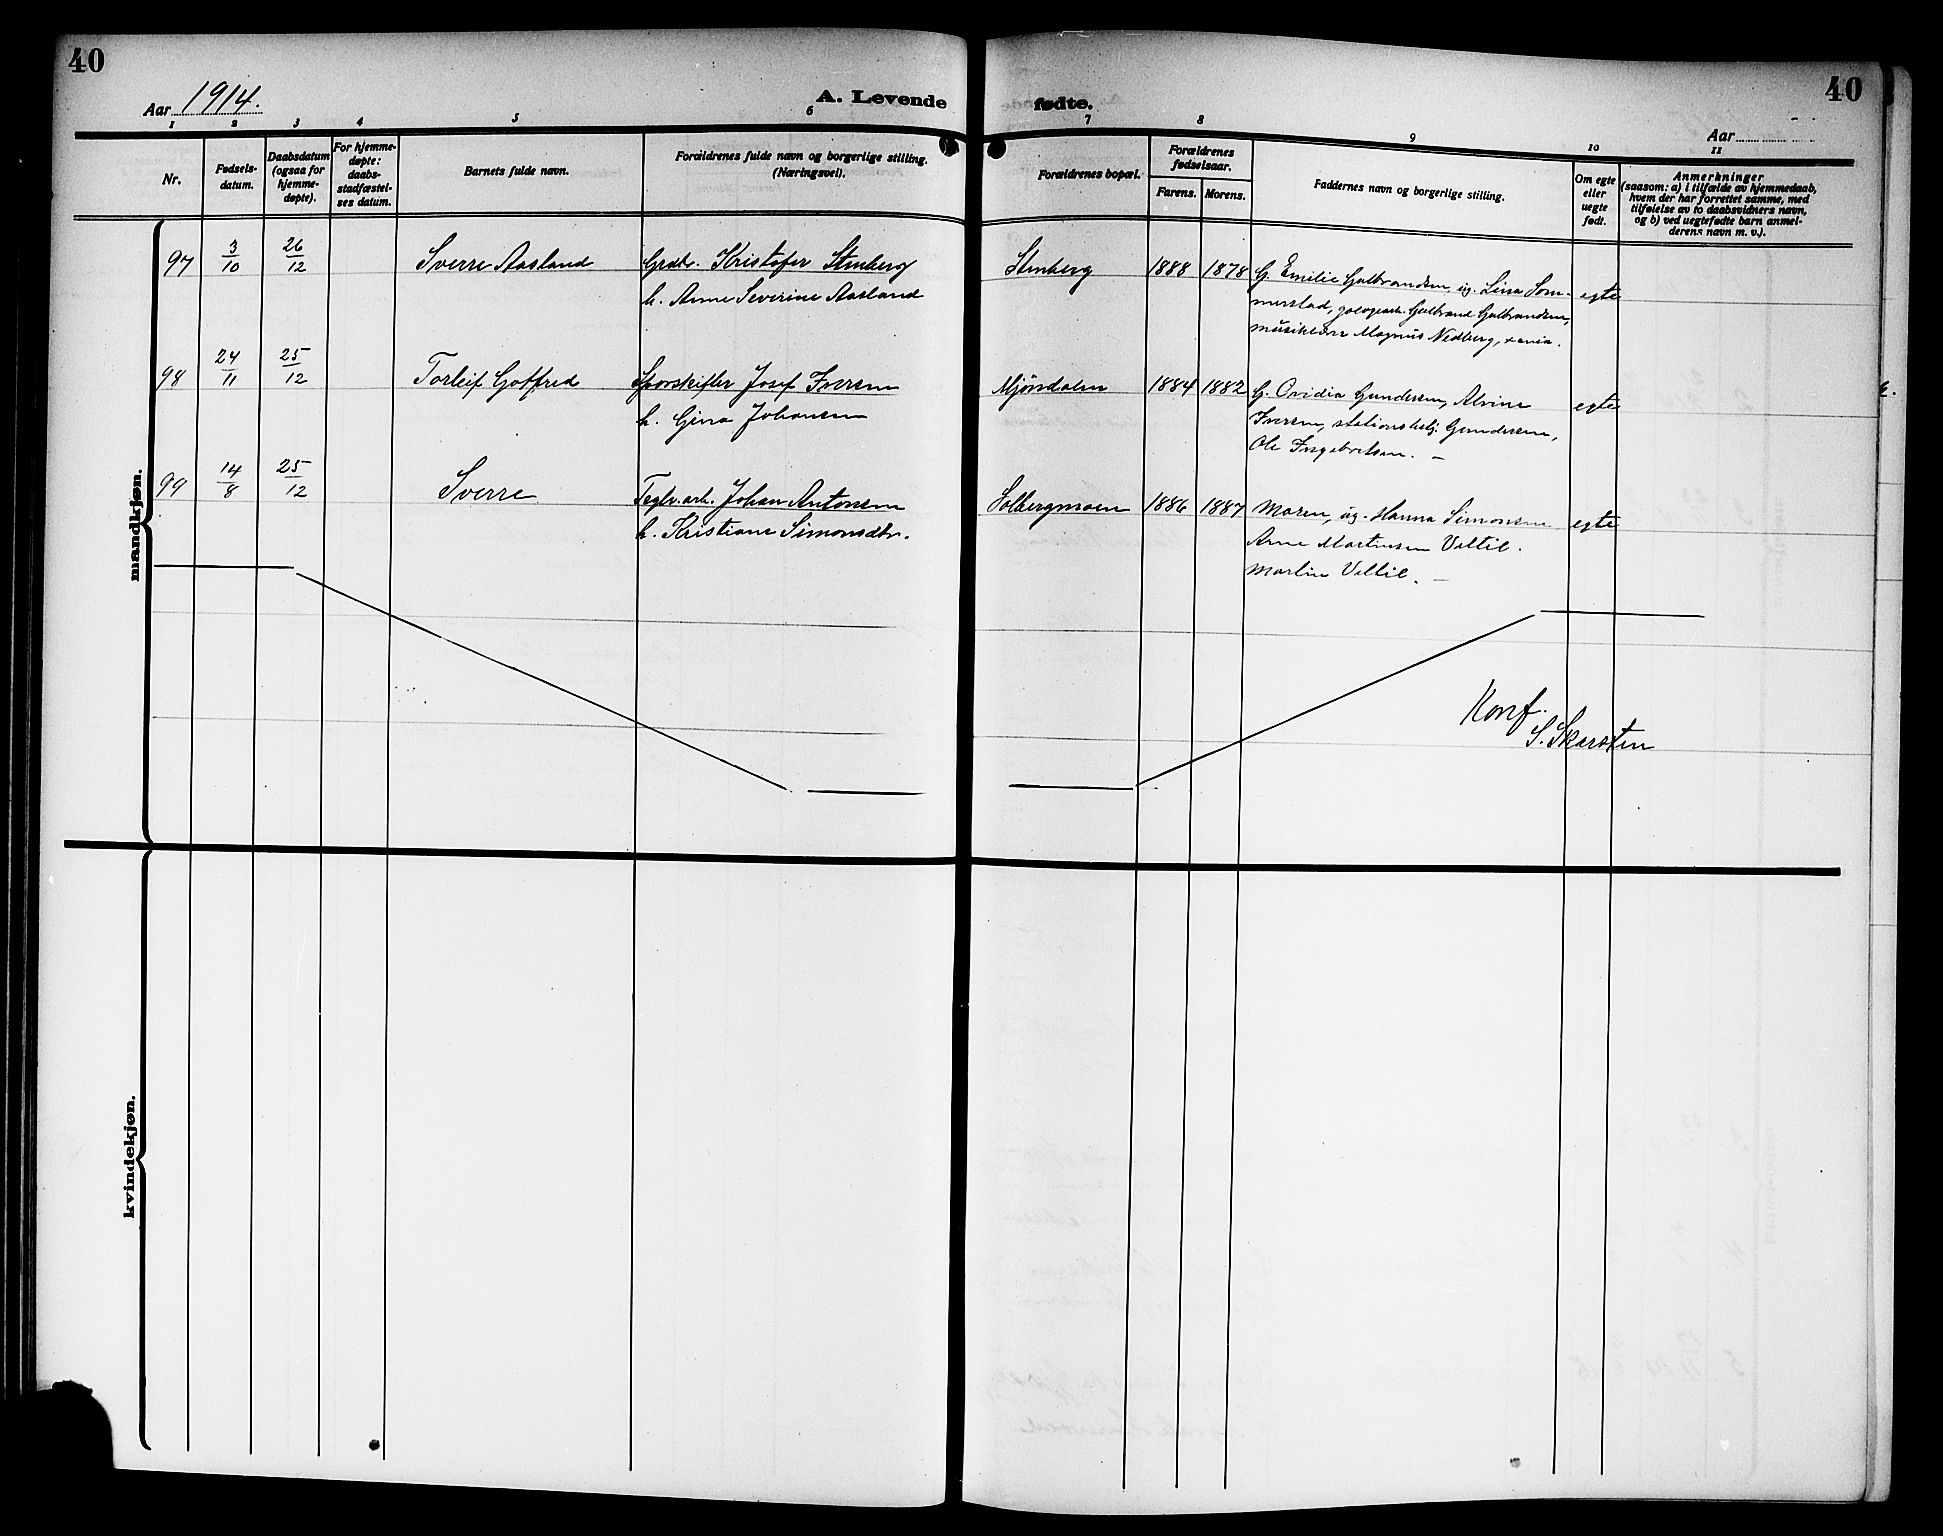 40
Aar 1914.
A. Levende
1 2 3 4 5 6
Nr.
Fødsels-
datum.
Daabsdatum
(ogsaa for
hjemme-
døpte).
For hjemme-
døpte:
daabs-
stadfæstel-
ses datum.
Barnets fulde navn.
Forældrenes fulde navn og borgerlige stilling.
(Næringsvei).
mandkjøn.
97 3/10 26/12 Sverre Aasland Grdbr. Kristofer Stenberg
h. Anne Severine Aasland
98 24/11 25/12 Torleif Gotfred Sporskifter Josef Iversen
h. Gina Johansen
99 14/8 25/12 Sverre Teglv.arb. Johan Antonsen
h. Kristiane Simonsdtr.
kvindekjøn.
fødte.
40
Aar
7 8 9 10 11
Forældrenes bopæl.
Forældrenes
fødselsaar.
Farens. Morens.
Faddernes navn og borgerlige stilling.
Om egte
eller
uegte
født.
Anmerkninger
(saasom: a) i tilfælde av hjemmedaab,
hvem der har forrettet samme, med
tilføielse av to daabsvidners navn,
og b) ved uegtefødte barn anmel-
derens navn m. v.).
Stenberg 1888 1878 G. Emilie Gulbrandsen, ug. Lina Som-
merstad, Gulbrand Gulbrandsen,
musiklærer Magnus Nedberg, x.ania.
egte
Mjøndalen 1884 1882 G. Ovidia Gundersen, Alvine
Iversen, stationsbetj. Gundersen,
Ole Ingebretsen. —
egte
Solbergmoen 1886 1887 Moren, ug. Hanna Simonsen
Arne Martinsen Veltil.
Martin Veltil. —
egte
Konf.
S. Skarsten